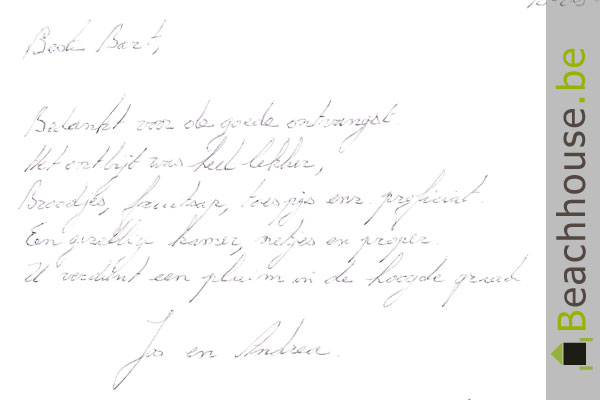 Beste Bart,
Bedankt voor de goede ontvangst.
Het ontbijt was heel lekker,
Broodjes, fruitsap, toespijs enz. proficiat.
Een gezellige kamer, netjes en proper.
U verdient een pluim in de hoogde graad
Jos en Andrea.
Beachhouse.be